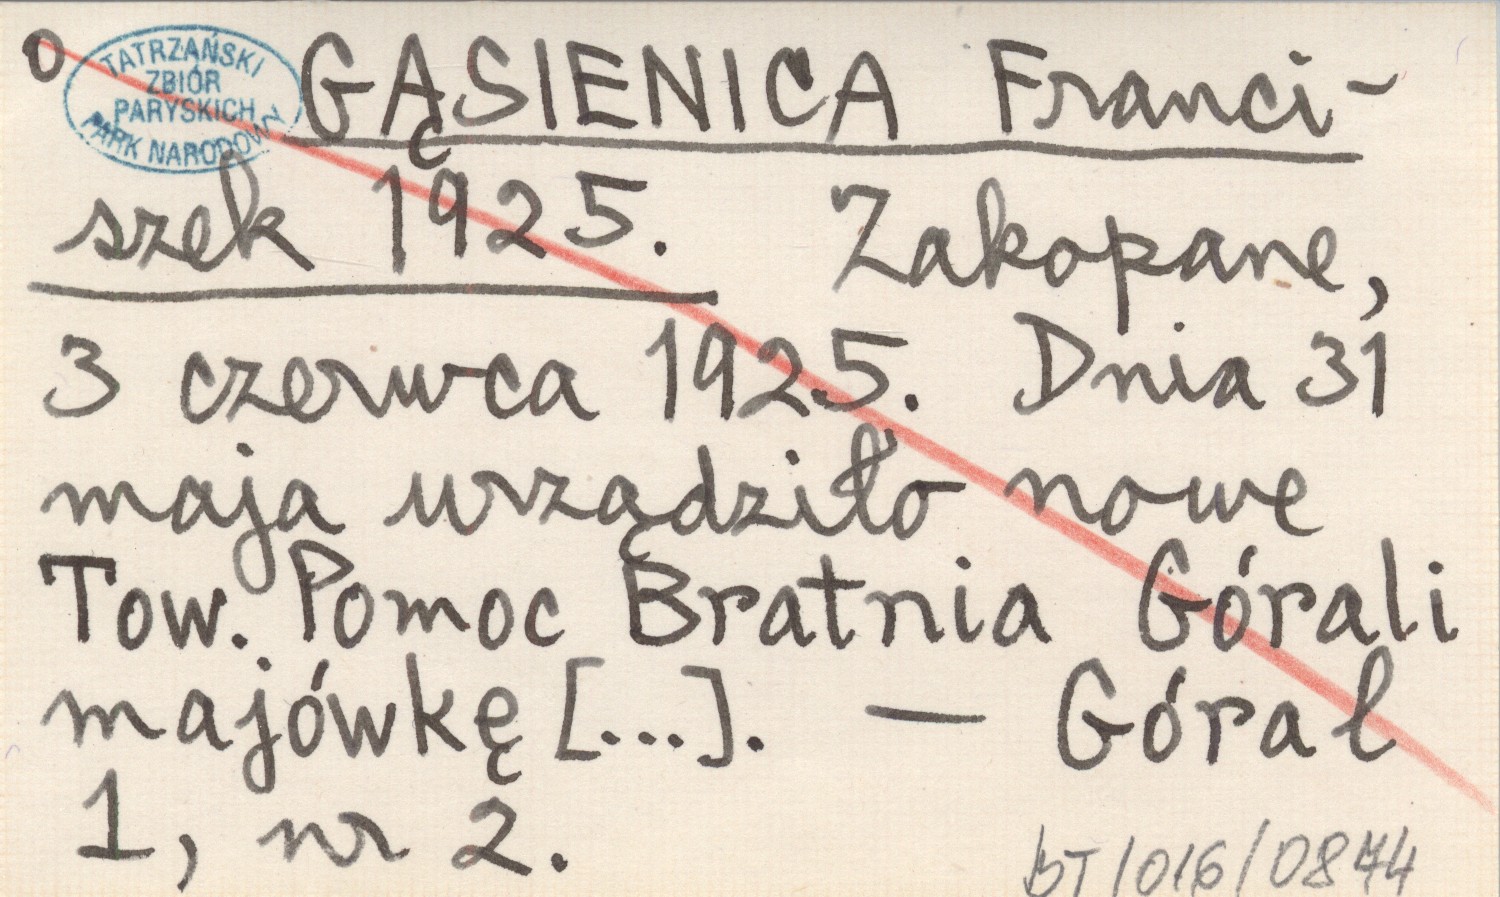 o
TATRZAŃSKI
ZBIÓR
PARYSKICH
PARK NARODOWY
GĄSIENICA Franci-
szek 1925. Zakopane,
3 czerwca 1925. Dnia 31
maja urządziło nowe
Tow. Pomoc Bratnia Górali
majówkę [...]. — Góral
1, nr 2.
BT/016/0874